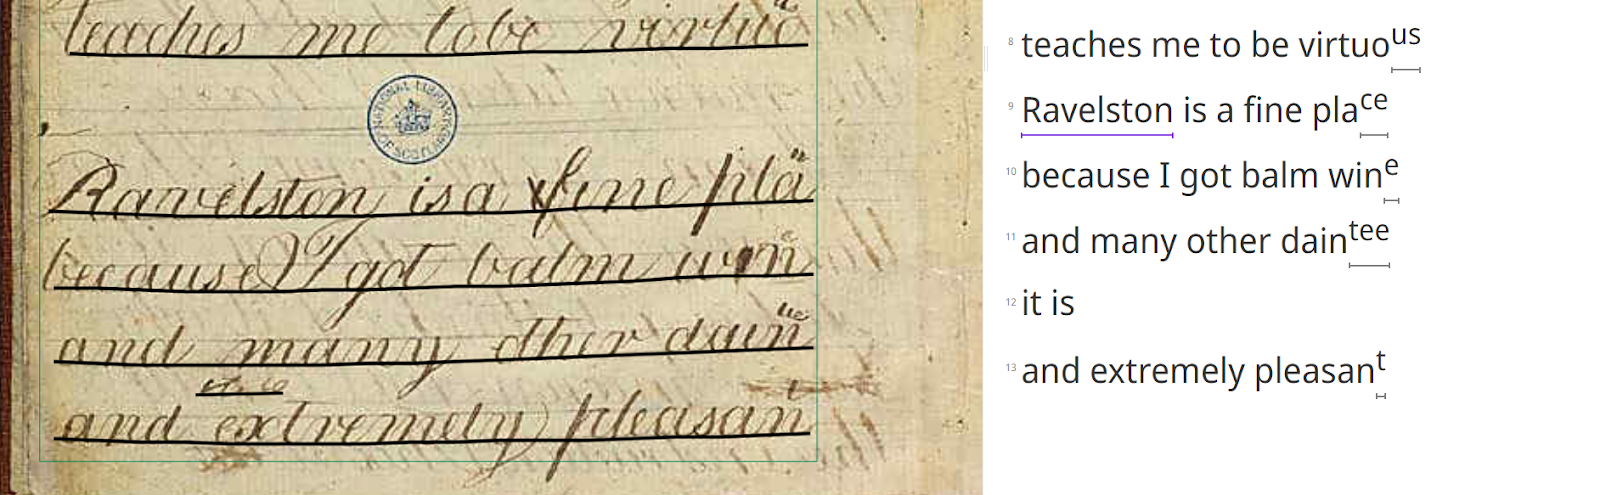 teaches me to be virtuo us
NATIONAL LIBRARY OF SCOTLAND
Ravelston is a fine pla ce
because I got balm win e
and many other dain tee
it is
and extremely pleasan
8 teaches me to be virtuous
9 Ravelston is a fine place
10 because I got balm wine
11 and many other daintee
12 it is
13 and extremely pleasant